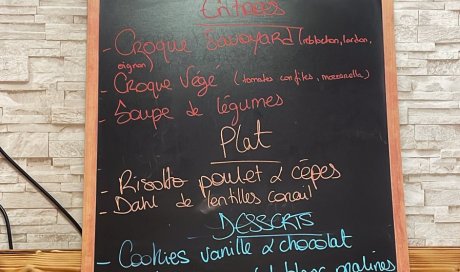 Entrées
- Croque Savoyard (reblochon, lardon,
oignon)
- Croque Végé (tomates confites, mozzarella)
- Soupe de légumes
Plat
- Risotto poulet & cèpes
- Dahl de lentilles corail
DESSERTS
- Cookies vanille & chocolat
blanc pralines